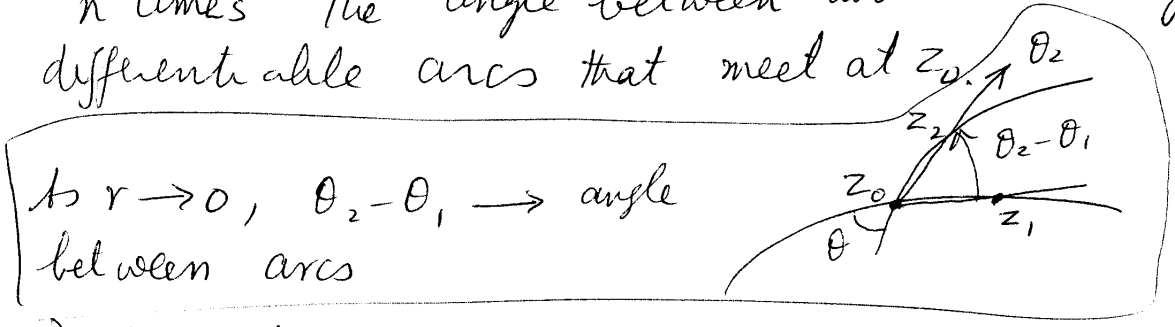 n times the angle between
differentiable arcs that meet at z₀.
As r → 0, θ₂-θ₁ → angle
between arcs
θ₂
z₂
θ₂-θ₁
z₀
z₁
θ